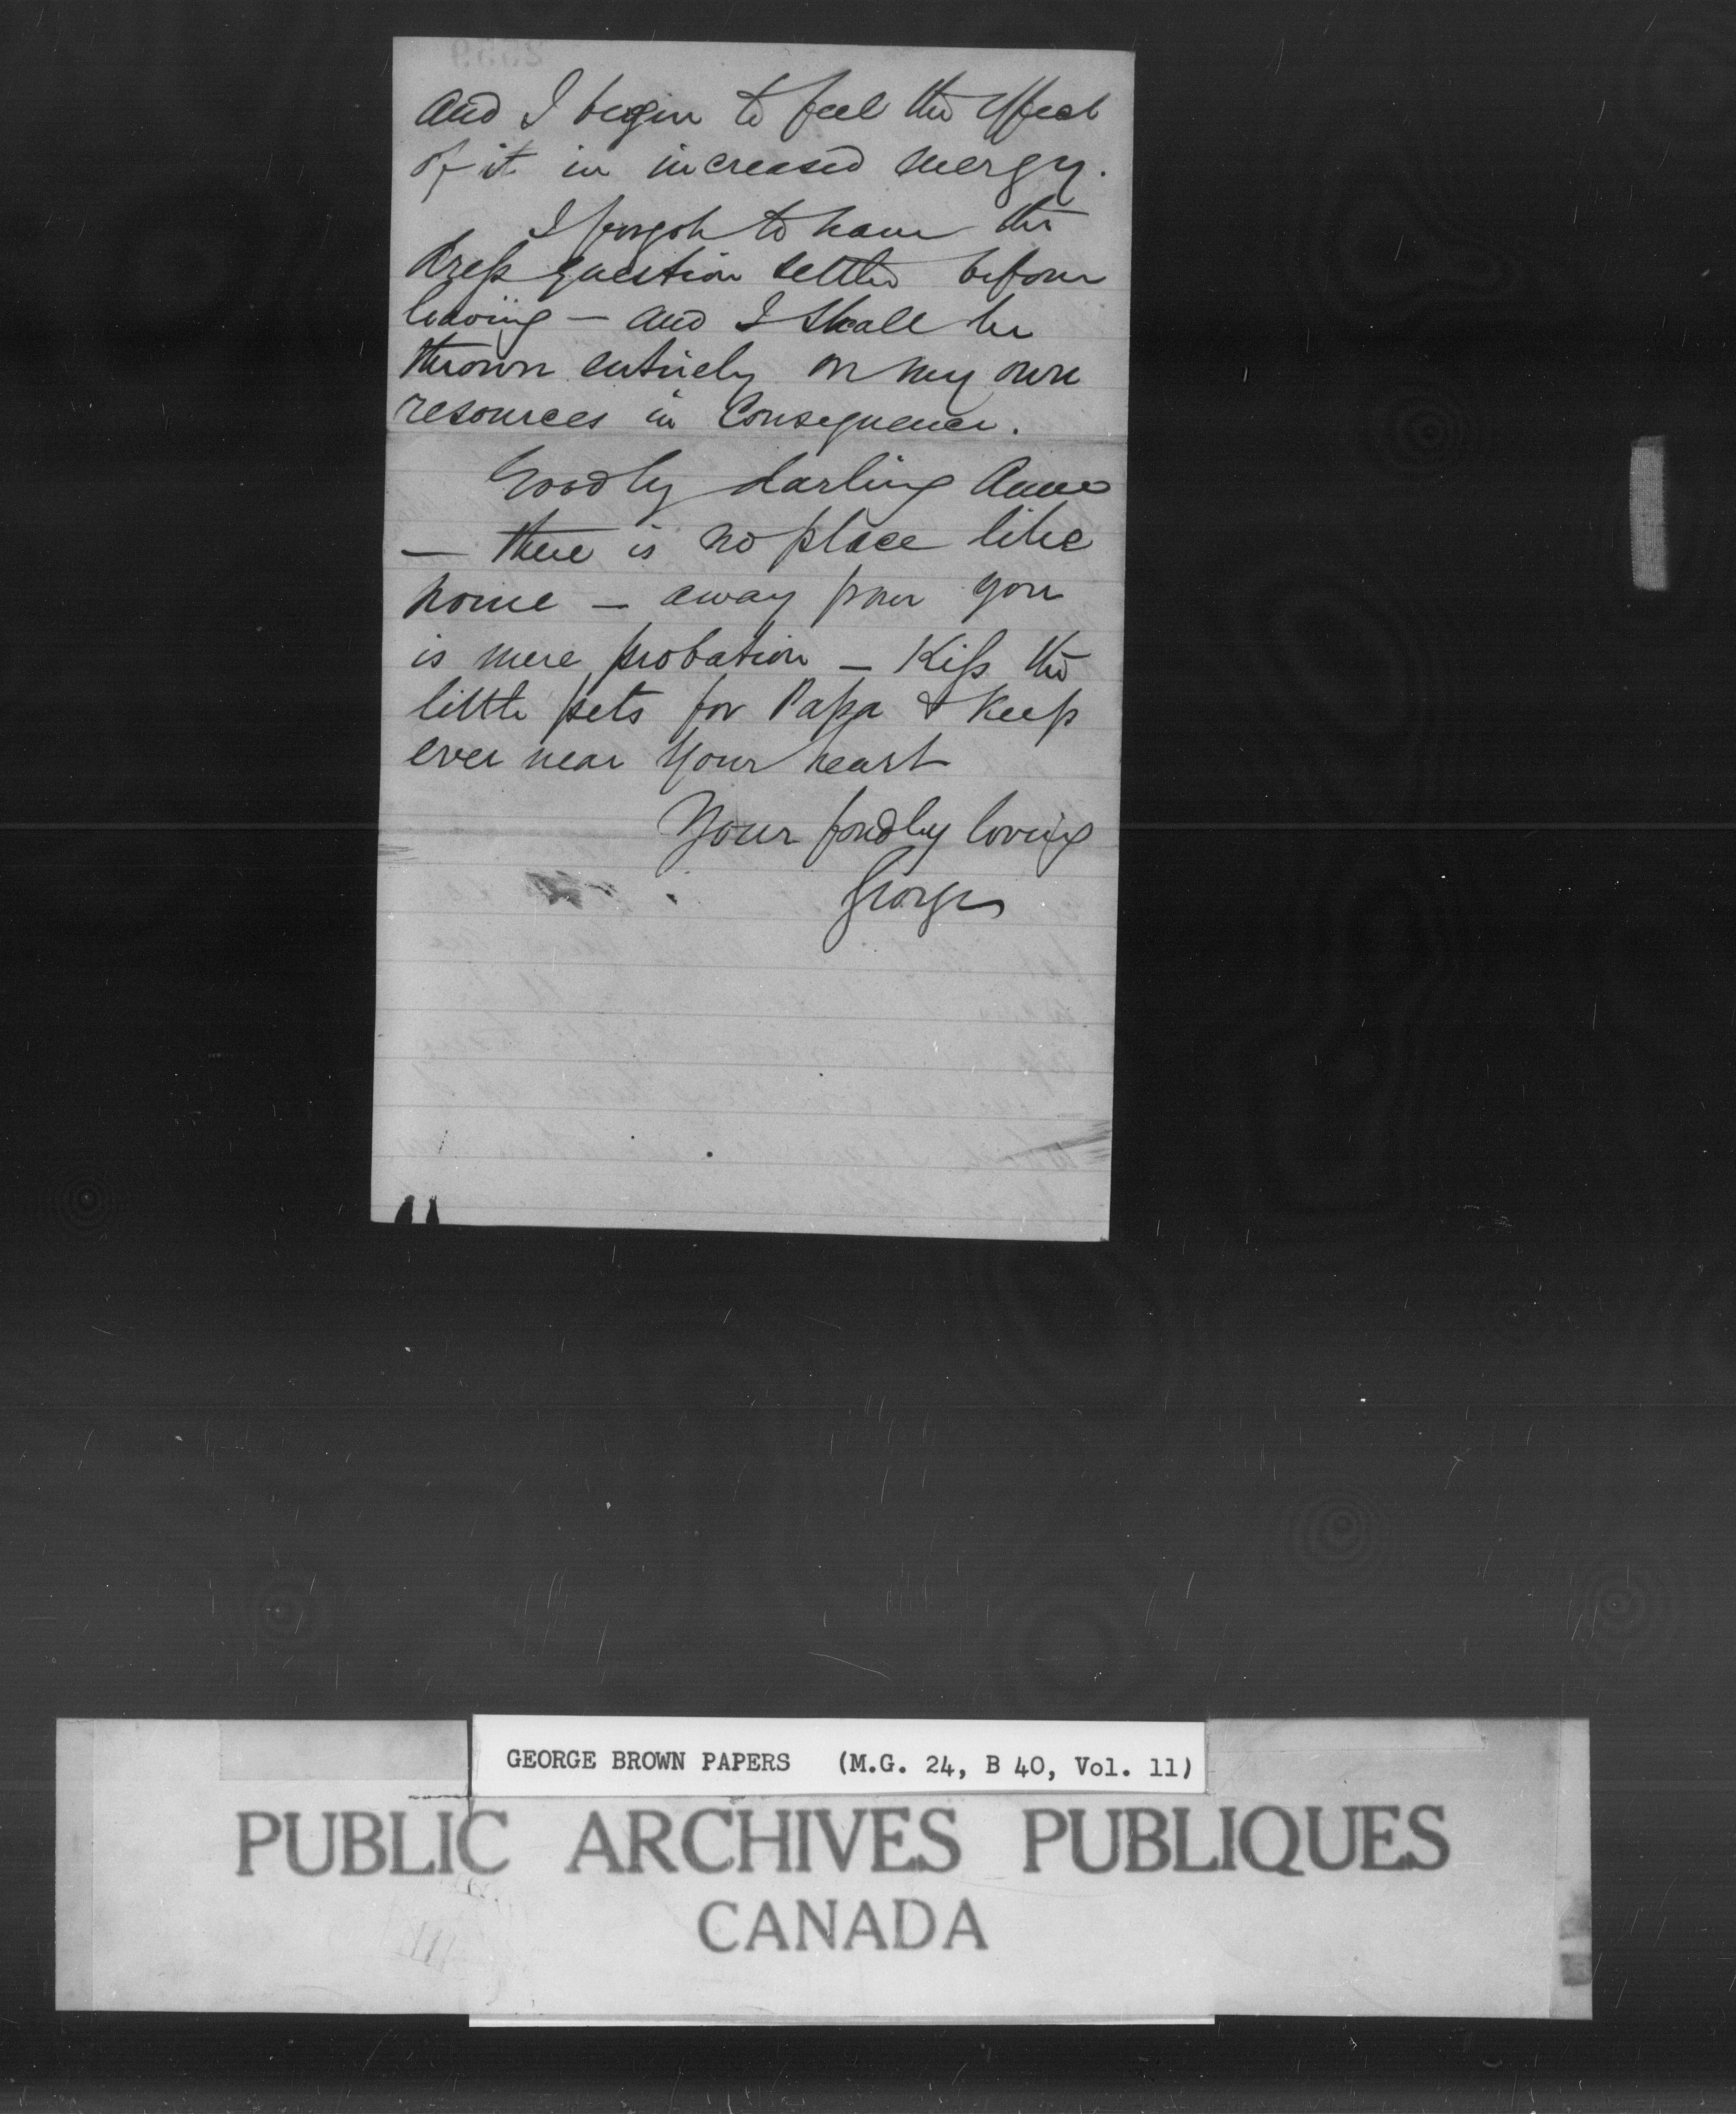 and I begin to feel the effect
of it in increased energy.
I forgot to have the
dress question settled before
leaving — and I shall be
thrown entirely on my own
resources in consequence.
Goodby darling Anne
— there is no place like
home — away from you
is mere probation — Kiss the
little pets for Papa & keep
ever near your heart
Your fondly loving
George
GEORGE BROWN PAPERS (M.G. 24, B 40, Vol. 11)
PUBLIC ARCHIVES PUBLIQUES
CANADA